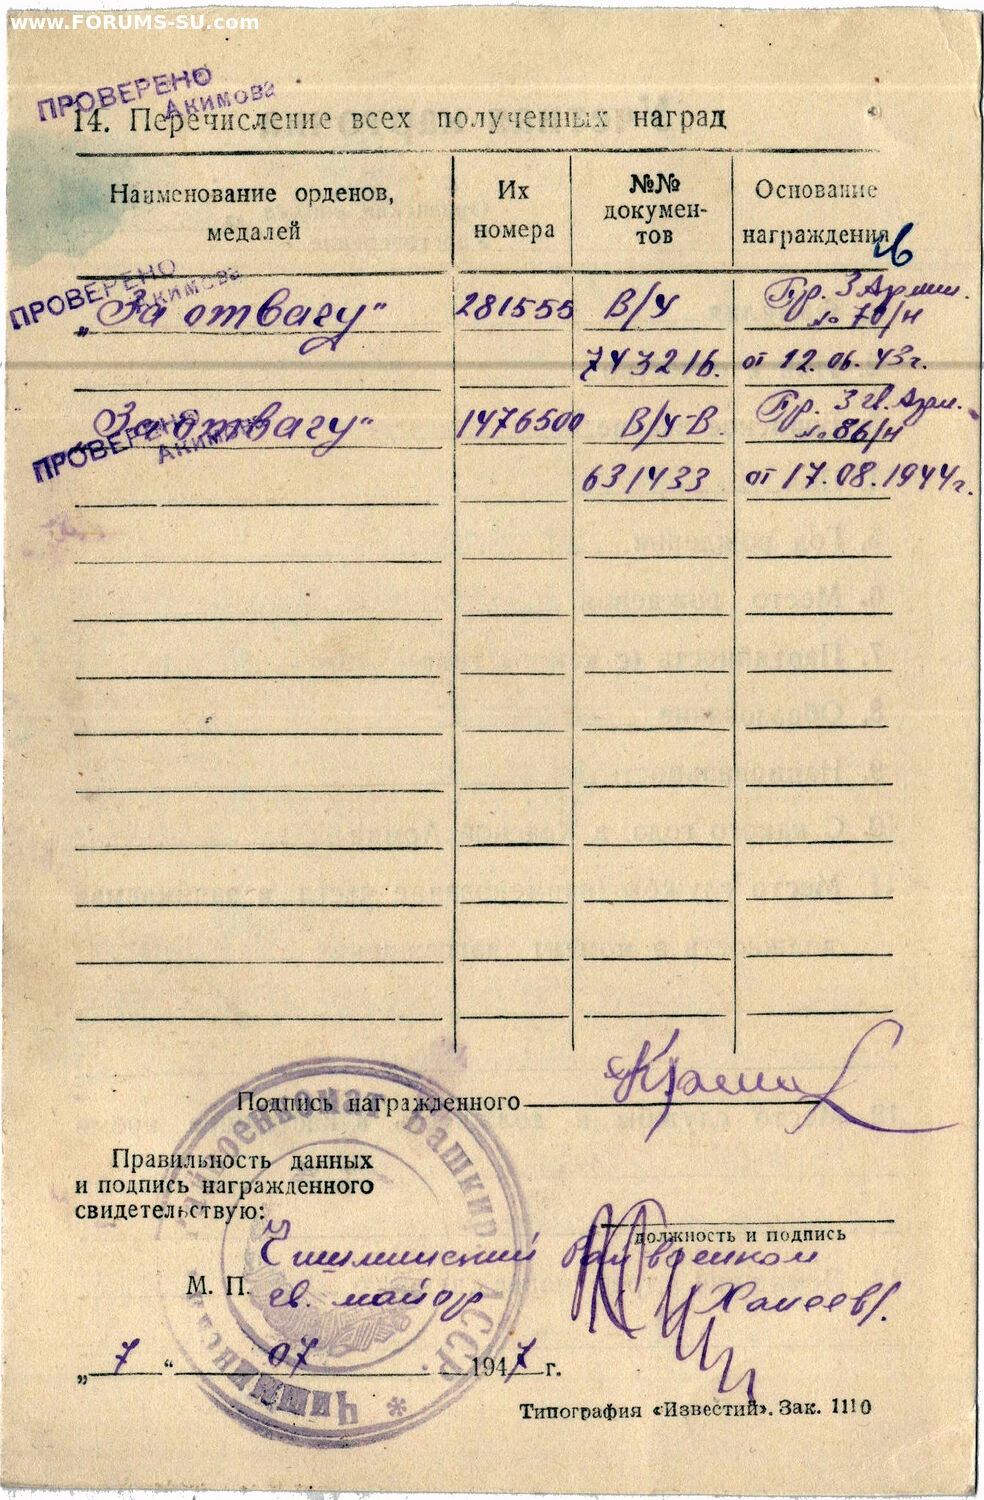 www.FORUMS-SU.com
ПРОВЕРЕНО
Акимова
14. Перечисление всех полученных наград
Наименование орденов, медалей
Их номера
№№ документов
Основание награждения
ПРОВЕРЕНО
Акимова
„За отвагу“ 281555 В/У Пр. 3 Армии. № 70/н
743216. от 12.06.43г.
„За отвагу“ 1476500 В/У-В Пр. 3 гв. Арм. № 86/н
ПРОВЕРЕНО
Акимова
631433 от 17.08.1944г.
Подпись награжденного
Правильность данных
и подпись награжденного
свидетельствую:
должность и подпись
Чишминский Райвоенком
М. П. гв. майор Ханеев
„7“ 07 1947 г.
Райвоенкомат Башкир. АССР * Чишминский
Типография «Известий». Зак. 1110